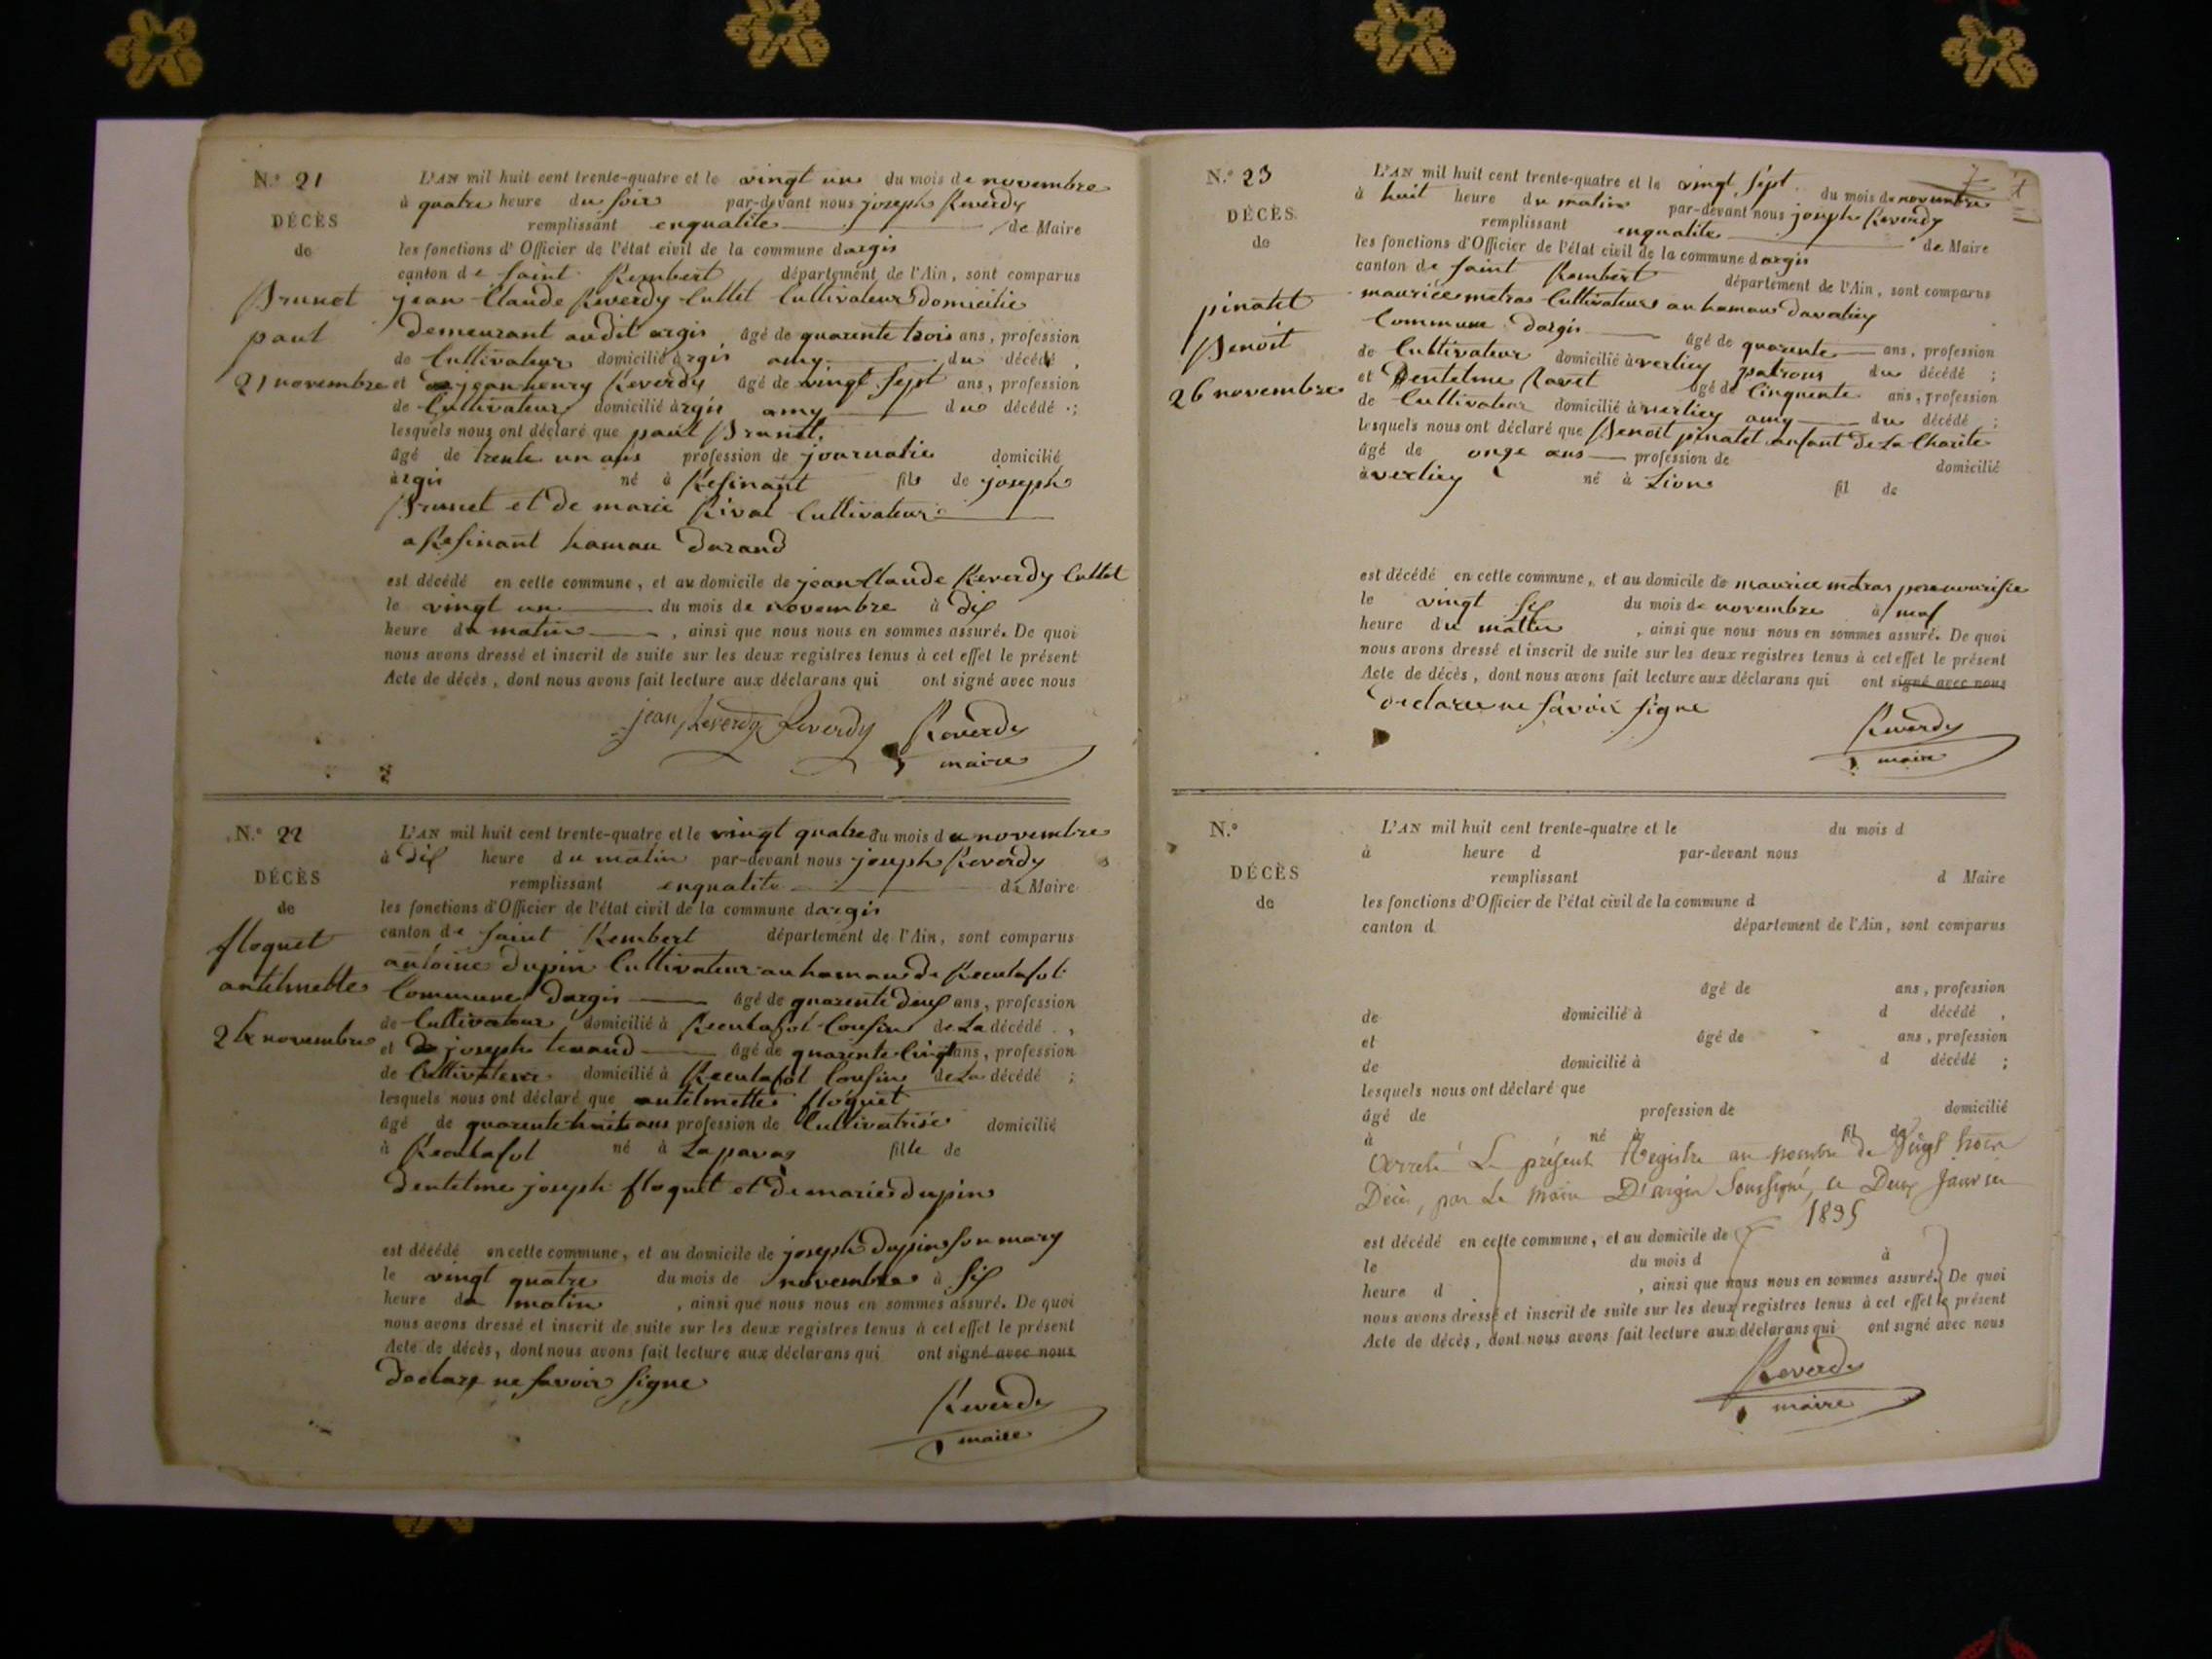 N.º 21
DÉCÈS
de
Brunet
paul
21 novembre
L'AN mil huit cent trente-quatre et le vingt un du mois de novembre
à quatre heure du soir par-devant nous joseph Reverdy
remplissant enqualite de Maire
les fonctions d'Officier de l'état civil de la commune dargis
canton de saint Rembert département de l'Ain, sont comparus
jean Claude Reverdy Cultivateur domicilie
demeurant audit argis âgé de quarente trois ans, profession
de Cultivateur domicilié àrgis amy du décédé,
et jean henry Reverdy âgé de vingt sept ans, profession
de Cultivateur domicilié àrgis amy du décédé;
lesquels nous ont déclaré que paul Brunet
âgé de trente un ans profession de journalie domicilié
àrgis né à Resinant fils de joseph
Brunet et de marie Rival Cultivateur
a Resinant hamau
est décédé en cette commune, et au domicile de jean Claude Reverdy
le vingt un du mois de novembre à dix
heure du matin, ainsi que nous nous en sommes assuré. De quoi
nous avons dressé et inscrit de suite sur les deux registres tenus à cet effet le présent
Acte de décès, dont nous avons fait lecture aux déclarans qui ont signé avec nous
jean Reverdy Reverdy Reverdy
maire
N.º 22
DÉCÈS
de
floquet
antelmette
24 novembre
L'AN mil huit cent trente-quatre et le vingt quatre du mois du novembre
à dix heure du matin par-devant nous joseph Reverdy
remplissant enqualite de Maire
les fonctions d'Officier de l'état civil de la commune dargis
canton de saint Rembert département de l'Ain, sont comparus
antoine dupin Cultivateur au hamau de Reculafol
Commune dargis âgé de quarente deux ans, profession
de Cultivateur domicilié à Reculafol Cousin de La décédé,
et joseph tenand âgé de quarente Cinq ans, profession
de Cultivateur domicilié à Reculafol Cousin de La décédé;
lesquels nous ont déclaré que antelmette floquet
âgé de quarente huit ans profession de Cultivatrise domicilié
à Reculafol né à Lapavas fille de
dentelme joseph floquet et de marie dupin
est décédé en cette commune, et au domicile de joseph dupin son mary
le vingt quatre du mois de novembre à six
heure du matin, ainsi que nous nous en sommes assuré. De quoi
nous avons dressé et inscrit de suite sur les deux registres tenus à cet effet le présent
Acte de décès, dont nous avons fait lecture aux déclarans qui ont signé avec nous
declare ne savoir signe
Reverdy
maire
N.º 23
DÉCÈS
de
pinatet
Benoit
26 novembre
L'AN mil huit cent trente-quatre et le vingt sept du mois de novembre
à huit heure du matin par-devant nous joseph Reverdy
remplissant enqualite de Maire
les fonctions d'Officier de l'état civil de la commune dargis
canton de saint Rembert département de l'Ain, sont comparus
maurice metras Cultivateur au hamau
Commune dargis âgé de quarente ans, profession
de Cultivateur domicilié àverliey patrons du décédé;
et dentelme ravet âgé de Cinquente ans, profession
de Cultivateur domicilié àverliey amy du décédé;
lesquels nous ont déclaré que Benoit pinatet anfant de La Charite
âgé de onze ans profession de domicilié
àverliey né à Lion fil de
est décédé en cette commune, et au domicile de maurice matras pere nourisie
le vingt six du mois de novembre à neuf
heure du mattin, ainsi que nous nous en sommes assuré. De quoi
nous avons dressé et inscrit de suite sur les deux registres tenus à cet effet le présent
Acte de décès, dont nous avons fait lecture aux déclarans qui ont signé avec nous
declare ne savoir signe
Reverdy
maire
N.º
DÉCÈS
de
L'AN mil huit cent trente-quatre et le du mois d
à heure d par-devant nous
remplissant d Maire
les fonctions d'Officier de l'état civil de la commune d
canton d département de l'Ain, sont comparus
âgé de ans, profession
de domicilié à d décédé,
et âgé de ans, profession
de domicilié à d décédé;
lesquels nous ont déclaré que
âgé de profession de domicilié
à né à fil de
Arreté Le présent Registre au nombre de Vingt trois
Décès, par Le Maire D'argis Soussigné, ce Deux Janvier
1835
est décédé en cette commune, et au domicile de
le du mois d à
heure d, ainsi que nous nous en sommes assuré. De quoi
nous avons dressé et inscrit de suite sur les deux registres tenus à cet effet le présent
Acte de décès, dont nous avons fait lecture aux déclarans qui ont signé avec nous
Reverdy
maire